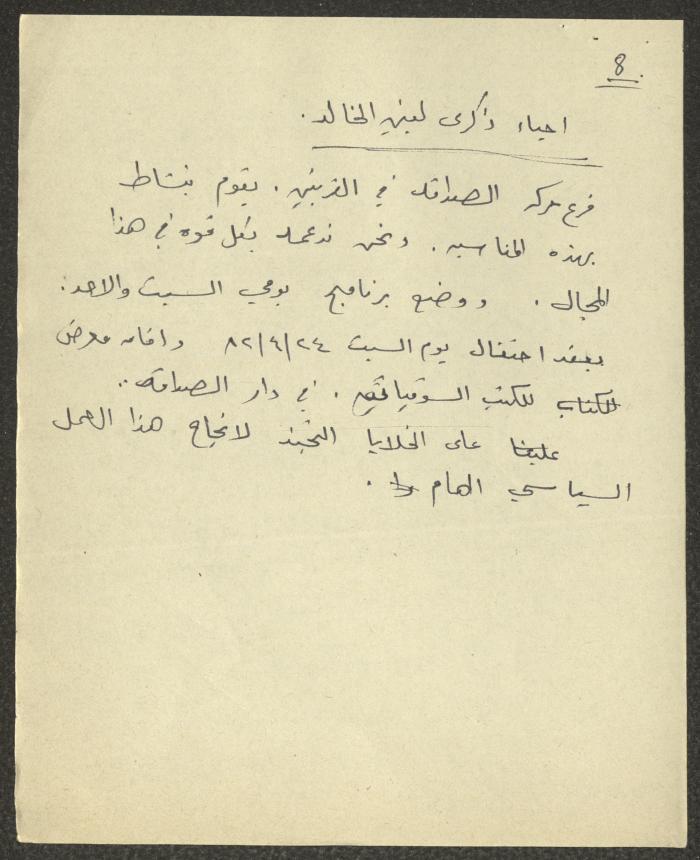 8
احياء ذكرى لينين الخالد.
فرع حركه الصداقه في . يقوم بنشاط
بهذه المناسبه. ونحن ندعمه بكل قوه في هذا
المجال. ووضع برنامج يومي السبت والاحد.
بعقد احتفال يوم السبت ٨٢/٤/٢٤ واقامه معرض
للكتاب للكتب السوفياتيه. في دار الصداقه..
علينا على الخلايا التجند لانجاح هذا العمل
السياسي الهام.